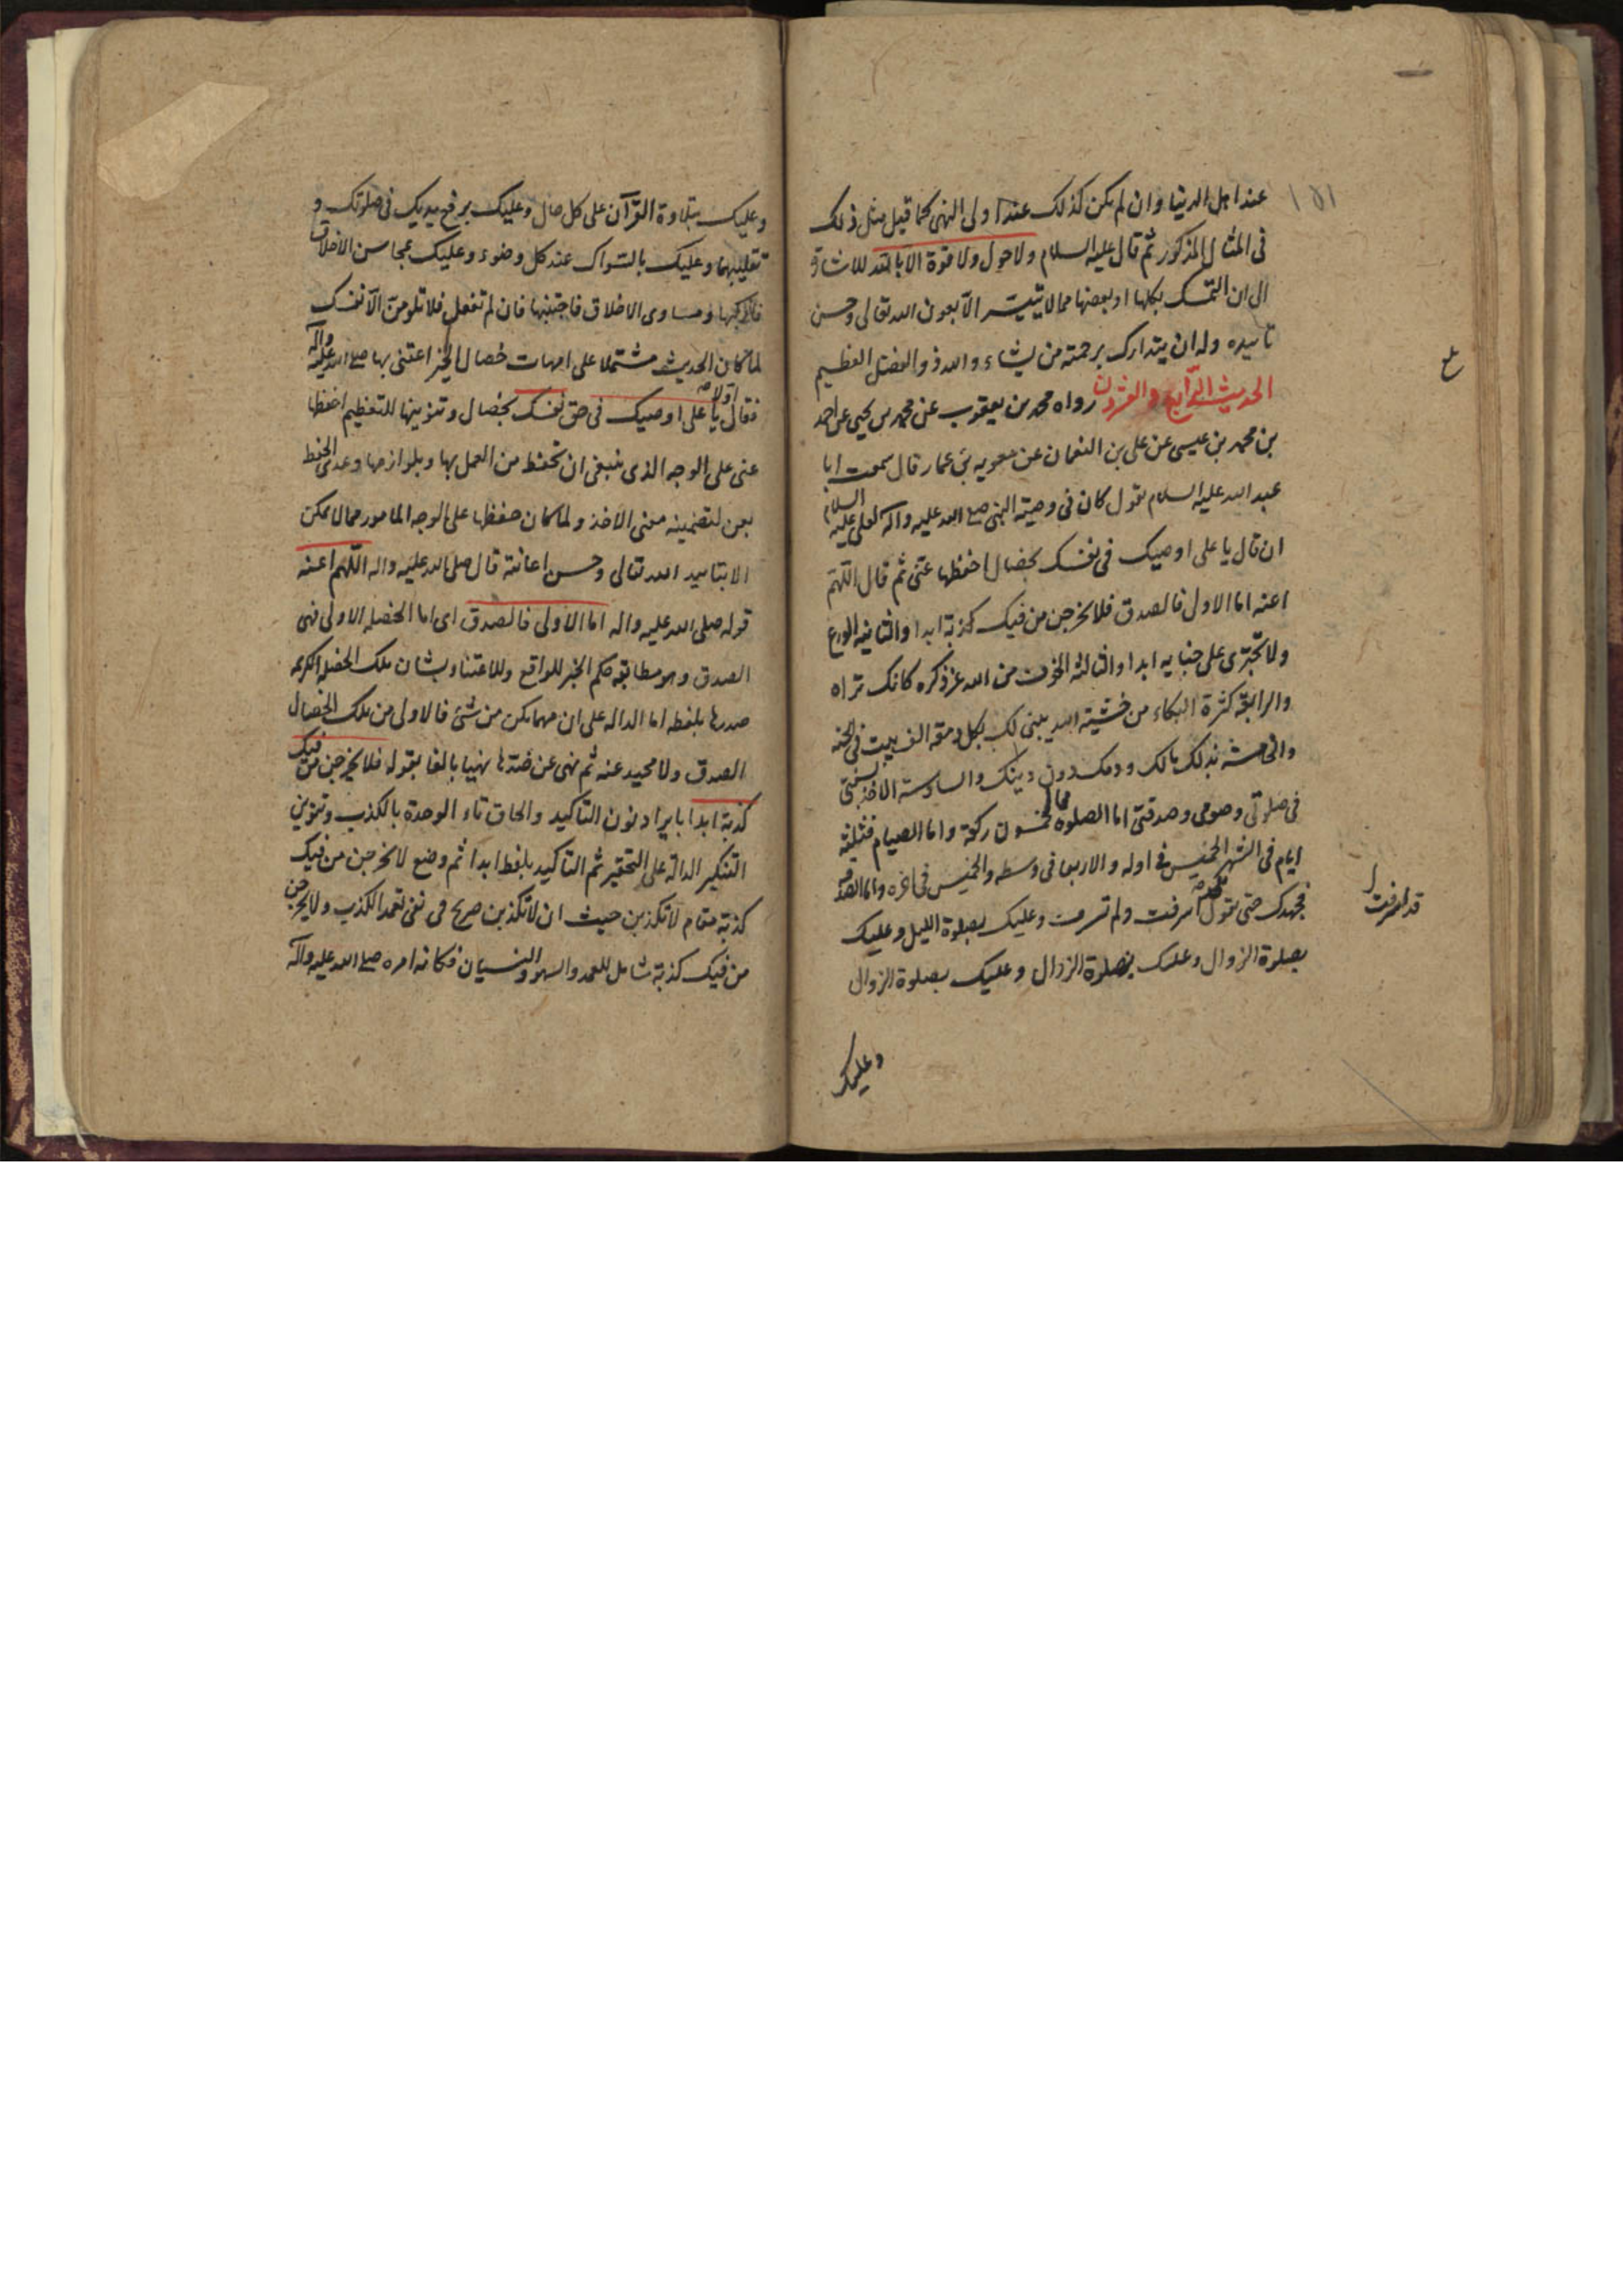 عند اهل الدنيا وان لم يكن كذلك عند اولى النهى كما قيل مثل ذلك
فى المثال المذكور ثم قال عليه السلام ولا حول ولا قوة الا بالله للاشارة
الى ان التمسك بكلها او ببعضها مما لا يتيسر الا بعون الله تعالى وحسن
تاييده وله ان يتدارك برحمته من يشاء والله ذو الفضل العظيم
الحديث الرابع والعشرون رواه محمد بن يعقوب عن محمد بن يحيى عن احمد
بن محمد بن عيسى عن على بن النعمان عن معويه بن عمار قال سمعت ابا
عبد الله عليه السلام يقول كان فى وصية النبى صلى الله عليه واله لعلى عليه السلام
ان قال يا على اوصيك فى نفسك بخصال احفظها عنى ثم قال اللهم
اعنه اما الاولى فالصدق فلا يخرجن من فيك كذبة ابدا والثانيه الورع
ولا تجترى على خيانه ابدا والثالثه الخوف من الله عز ذكره كانك تراه
والرابعة كثرة البكاء من خشية الله يبنى لك بكل دمعة الف بيت فى الجنه
والخامسة بذلك مالك ودمك دون دينك والسادسة الاخذ بسنتى
فى صلوتى وصومى وصدقتى اما الصلوة فالخمسون ركعة واما الصيام فثلثة
ايام فى الشهر الخميس فى اوله والاربعا فى وسطه والخميس فى اخره واما الصدقه
فجهدك حتى تقول اسرفت ولم تسرف وعليك بصلوة الليل وعليك
بصلوة الزوال وعليك بصلوة الزوال وعليك بصلوة الزوال
وعليك
قد اسرفت
ع
١٥١
وعليك بتلاوة القرآن على كل حال وعليك برفع يديك فى صلوتك و
تقليبهما وعليك بالسواك عند كل وضوء وعليك بمحاسن الاخلاق
فاركبها ومساوى الاخلاق فاجتنبها فان لم تفعل فلا تلومن الا نفسك
لما كان الحديث مشتملا على امهات خصال الخير اعتنى بها صلى الله عليه وآله
فقال اولا يا على اوصيك فى حق نفسك بخصال وتنوينها للتعظيم احفظها
عنى على الوجه الذى ينبغى ان تحفظ من العمل بها وبلوازمها وعدى الحفظ
بعن لتضمينه معنى الاخذ ولما كان حفظها على الوجه المامور مما لا يمكن
الا بتاييد الله تعالى وحسن اعانته قال صلى الله عليه واله اللهم اعنه
قوله صلى الله عليه واله اما الاولى فالصدق اى اما الخصله الاولى فهى
الصدق وهو مطابقة حكم الخبر للواقع وللاعتناء بشان تلك الخصله الكريمه
صدرها بلفظه اما الداله على ان مهما يكن من شئ فالاولى من تلك الخصال
الصدق ولا محيد عنه ثم نهى عن ضدها نهيا بالغا بقوله فلا يخرجن من فيك
كذبة ابدا بايراد نون التاكيد والحاق تاء الوحدة بالكذب وتنوين
التنكير الدالة على التحقير ثم التاكيد بلفظ ابدا ثم وضع لا يخرجن من فيك
كذبة مقام لا تكذبن حيث ان لا تكذبن صريح فى نفى تعمد الكذب ولا يخرجن
من فيك كذبة شامل للعمد والسهو والنسيان فكانه امره صلى الله عليه وآله